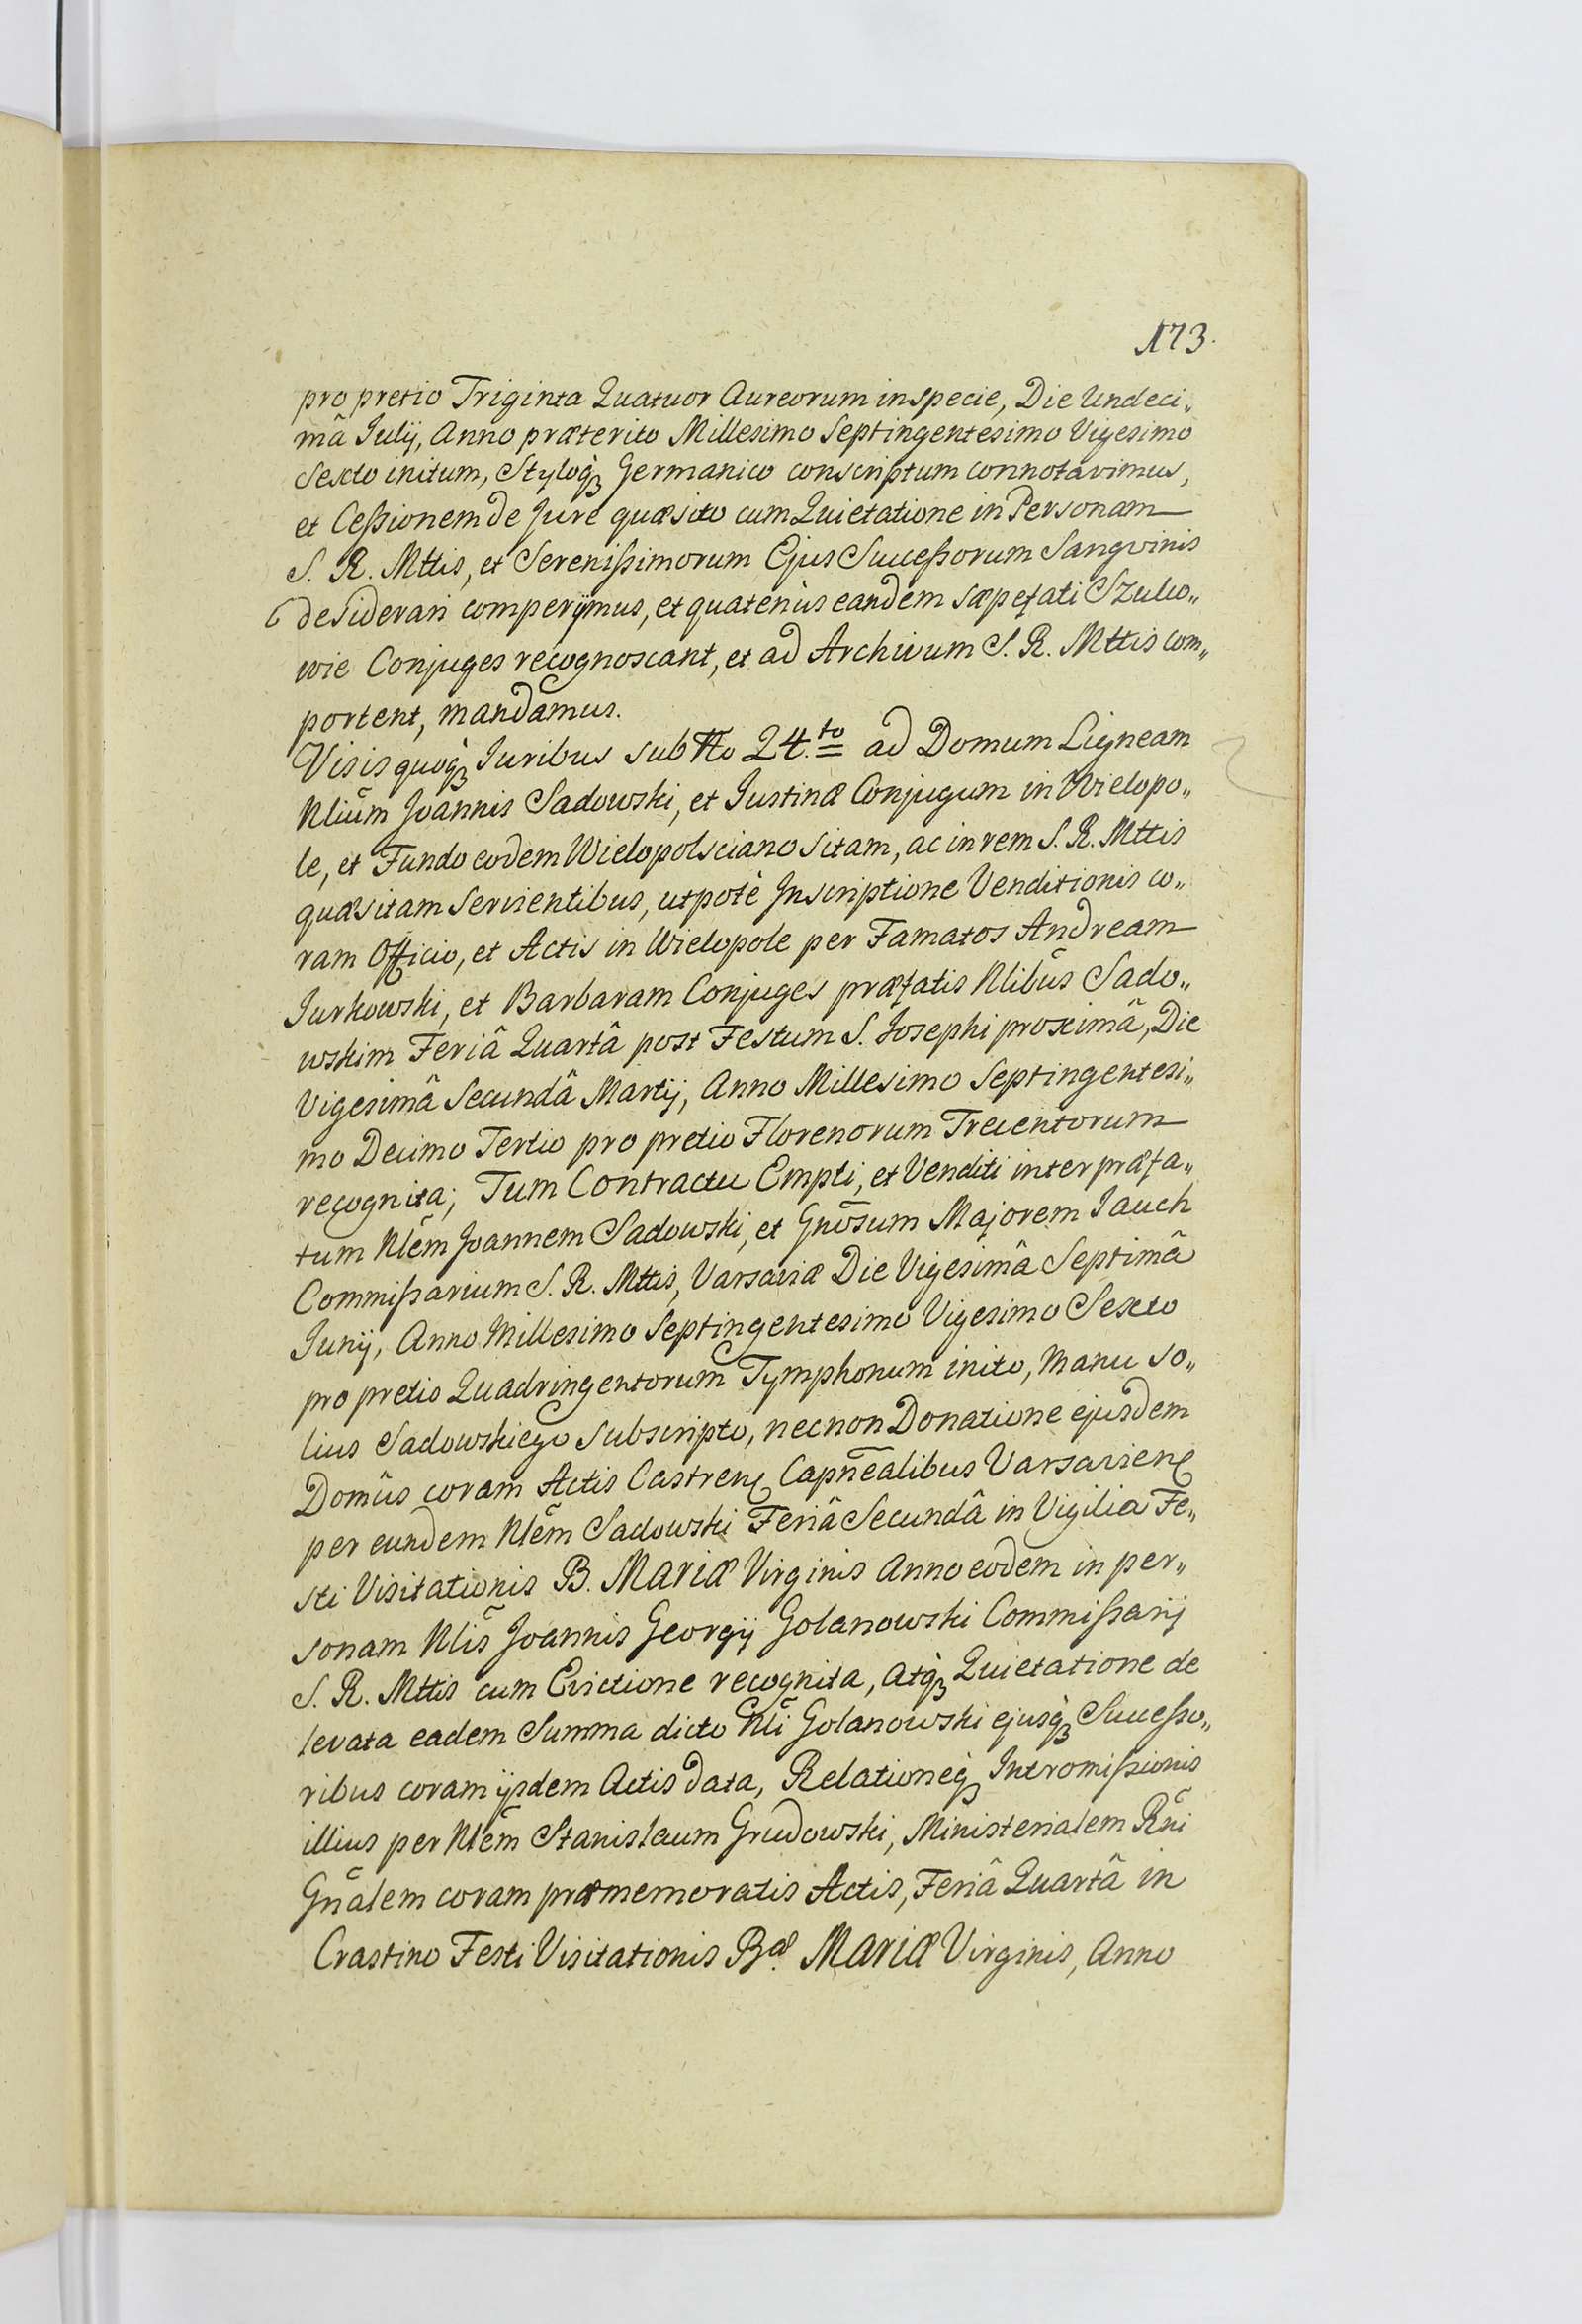 173.
pro pretio Triginta Quatuor Aureorum in specie, Die Undeci„
mâ Julij, Anno præterito Millesimo Septingentesimo Vigesimo
Sexto initum, Styloq̀ꝫ Germanico conscriptum connotavimus,
et Ceßionem de Jure quæsito cum Quietatione in Personam
S. R. Mttis, et Serenißimorum Ejus Sucessorum Sangvinis
desiderari comperijmus, et quatenùs eandem sæpefati Szulco„
wie Conjuges recognoscant, et ad Archivum S. R. Mttis com„
portent, mandamus.
Visis quoq̀ꝫ Juribus sub No 24.to ad Domum Ligneam
Nlium̃ Joannis Sadowski, et Justinæ Conjugum in Wielopo„
le, et Fundo eodem Wielopolsciano sitam, ac in rem S. R. Mttis
quæsitam servientibus, utpotè Inscriptione Venditionis co„
ram Officio, et Actis in Wielopole per Famatos Andream
Jurkowski, et Barbaram Conjuges præfatis Nlibus̃ Sado„
wskim Feriâ Quartâ post Festum S. Josephi proximâ, Die
Vigesimâ Secundâ Martij, Anno Millesimo Septingentesi„
mo Decimo Tertio pro pretio Florenorum Trecentorum
recognita; Tum Contractu Empti, et Venditi inter præfa„
tum Nlem̃ Joannem Sadowski, et Gnosum̃ Majorem Jauch
Commißarium S. R. Mttis, Varsaviæ Die Vigesimâ Septimâ
Junij, Anno Millesimo Septingentesimo Vigesimo Sexto
pro pretio Quadringentorum Tymphonum inito, manu so„
lius Sadowskiego subscripto, necnon Donatione ejusdem
Domûs coram Actis Castren Capnealibus̃ Varsavien
per eundem Nlem̃ Sadowski Feriâ Secundâ in Vigilia Fe„
sti Visitationis B. MARIÆ Virginis Anno eodem in per„
sonam Nlis̃ Joannis Georgij Golanowski Commißarij
S. R. Mttis cum Evictione recognita, atq̀ꝫ Quietatione de
levata eadem Summa dicto Nlĩ Golanowski ejusq̀ꝫ Suceßo„
ribus coram ijsdem Actis data, Relationeq̀ꝫ Intromißionis
illius per Nlem̃ Stanislaum Grudowski, Ministerialem Rnĩ
Gnãlem coram præmemoratis Actis, Feriâ Quartâ in
Crastino Festi Visitationis Bæ. MARIÆ Virginis, Anno